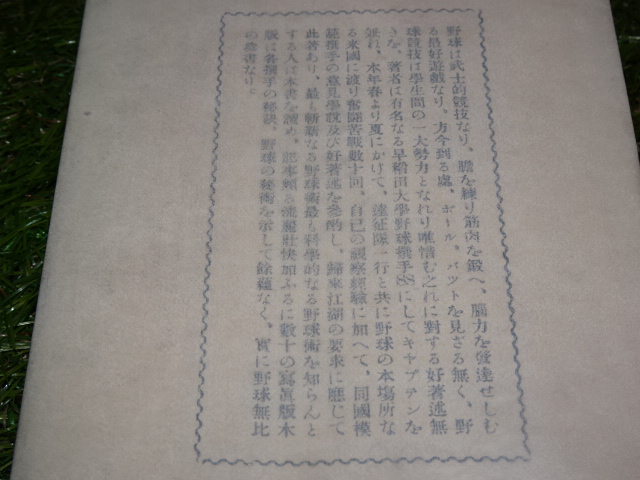 野球は武士的競技なり、膽を練り筋肉を鍛へ、腦力を發達せしむ
る最好遊戲なり、方今到る處、ボール、バツトを見ざる無く、野
球競技は學生間の一大勢力となれり唯惜む之れに對する好著述無
きを、著者は有名なる早稲田大學野球撰手にしてキヤプテンを
兼れ、本年春より夏にかけて、遠征隊一行と共に野球の本塲所な
る米國に渡り奮鬪苦戰數十回、自己の視察經驗に加へて、同國模
範撰手の意見學説及び好著述を參酌し、歸來江湖の要求に應じて
此著あり、最も斬新なる野球術最も科學的なる野球術を知らんと
する人は本書を讀め、記事頗る流麗壯快加ふるに數十の寫眞版木
版は名撰手の秘訣、野球の秘術を示して餘蘊なく、實に野球無比
の珍書なり。